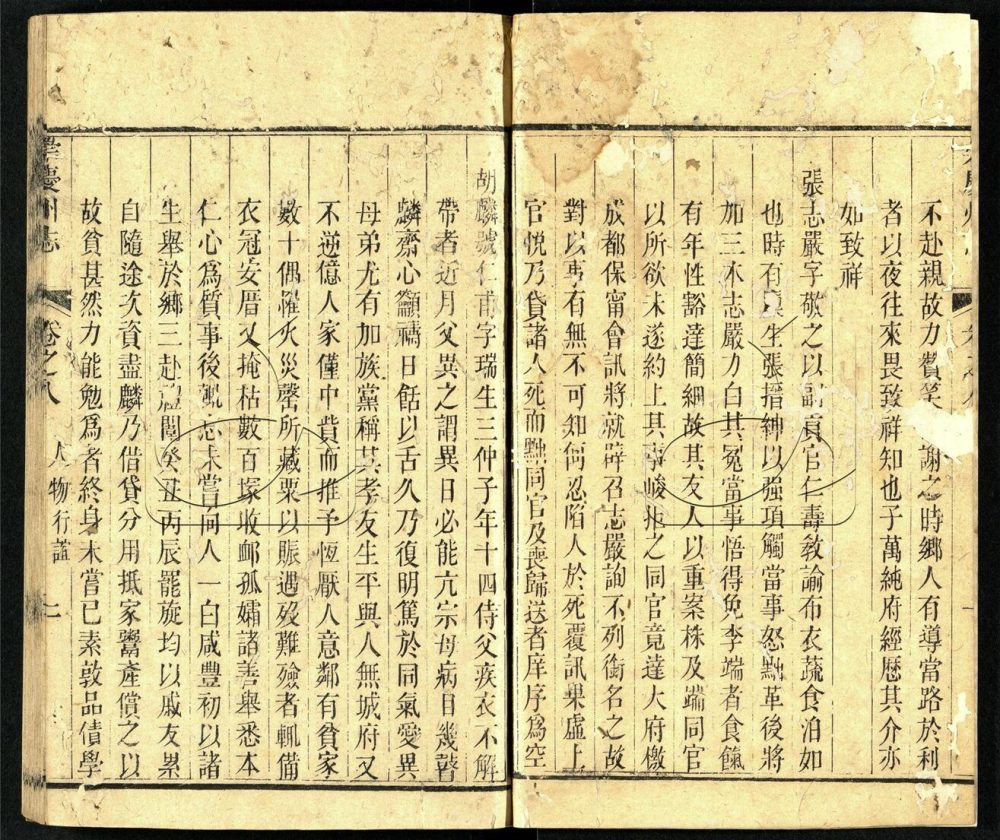 不赴親故力賛笑謝之時鄉人有導當路於利
者以夜往來畏致祥知也子萬純府經歷其介亦
如致祥
張志嚴字敬之以副貢官仁壽敎諭布衣蔬食泊如
也時有生張搢紳以强項觸當事怒黜革後將
加三木志嚴力白其冤當事悟得免李端者食餼
有年性豁達簡細故其友人以重案株及端同官
以所欲未遂約上其事峻拒之同官竟達大府檄
成都保甯會訊將就辟召志嚴詢不列銜名之故
對以事有無不可知何忍陷人於死覆訊果虛上
官悅乃貸諸人死而黜同官及喪歸送者庠序爲空
胡麟號仁甫字瑞生三仲子年十四侍父疾衣不解
帶者近月父異之謂異日必能亢宗母病目幾瞽
麟齋心籲禱日餂以舌久乃復明篤於同氣愛異
母弟尤有加族黨稱其孝友生平與人無城府又
不逆億人家僅中貲而推予恆厭人意鄰有貧家
數十偶罹火災罄所藏粟以賑遇歿難殮者輒備
衣冠安厝又掩枯數百塚收邮孤孀諸善舉悉本
仁心爲質事後輒忘未嘗向人一白咸豐初以諸
生舉於鄉三赴禮闈癸丑丙辰罷旋均以戚友累
自隨途次資盡麟乃借貸分用抵家鬻產償之以
故貧甚然力能勉爲者終身未嘗已素敦品債學
慶州志
卷之八
人物行誼